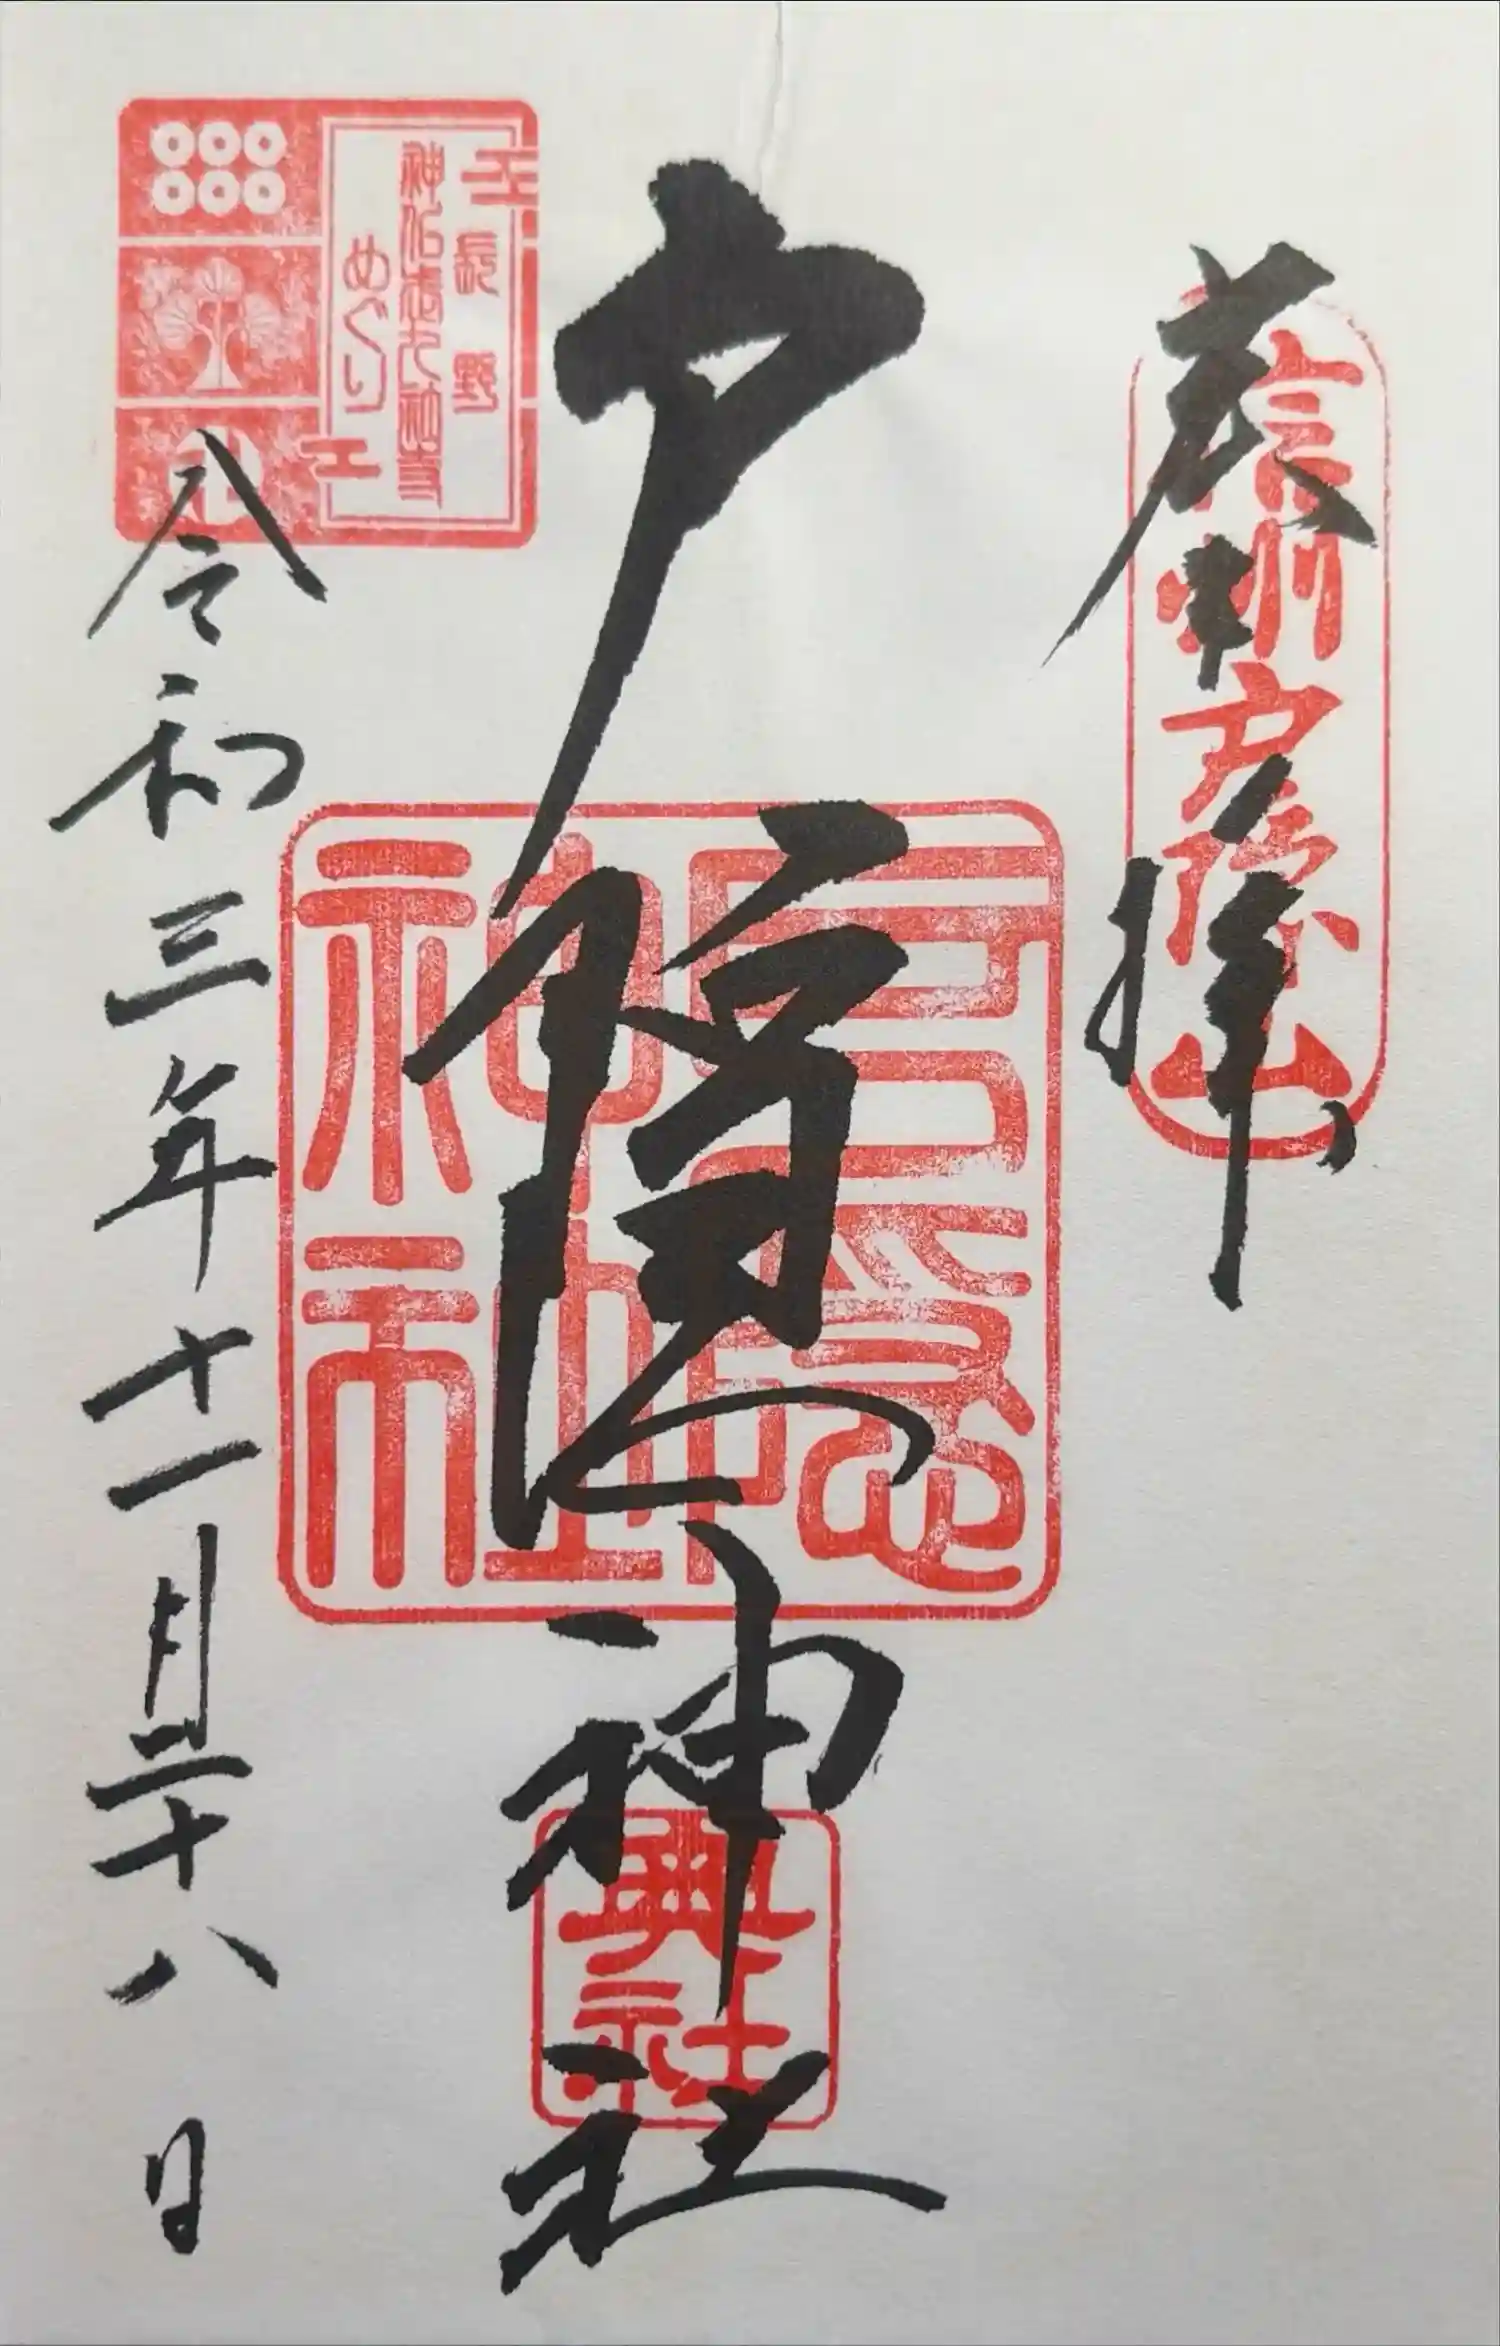 奉拝
信州戸隠山
戸隠神社
戸隠神社
奥社
長野
神仏悉九社寺
めぐり
令和三年十一月二十八日